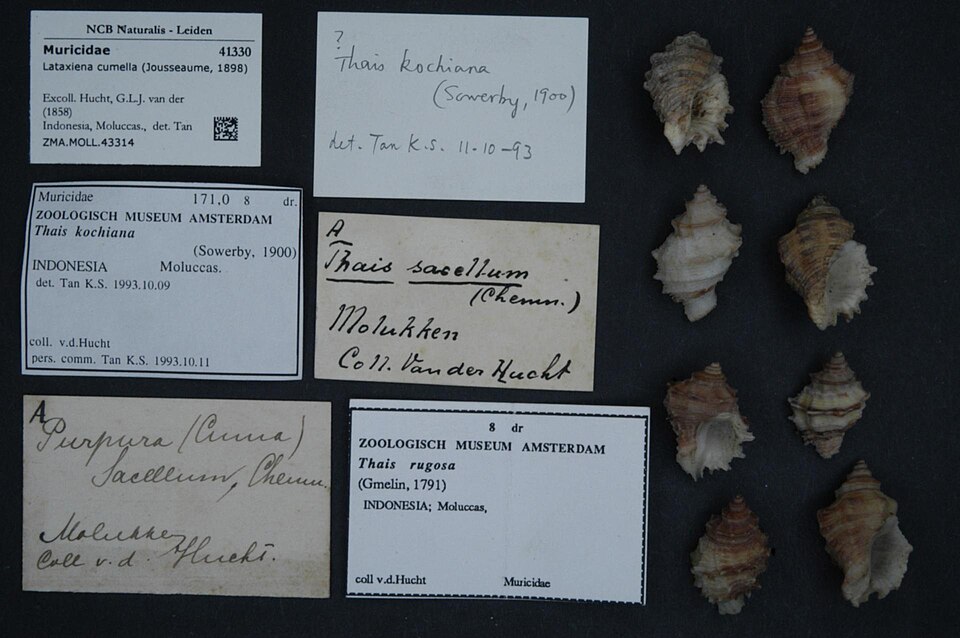 NCB Naturalis - Leiden
Muricidae 41330
Lataxiena cumella (Jousseaume, 1898)
Excoll. Hucht, G.L.J. van der
(1858)
Indonesia, Moluccas., det. Tan
ZMA.MOLL.43314
?
Thais kochiana
(Sowerby, 1900)
det. Tan K.S. 11-10-93
Muricidae 171,0 8 dr.
ZOOLOGISCH MUSEUM AMSTERDAM
Thais kochiana
(Sowerby, 1900)
INDONESIA Moluccas.
det. Tan K.S. 1993.10.09
coll. v.d.Hucht
pers. comm. Tan K.S. 1993.10.11
A
Thais sacellum
(Chemn.)
Molukken
Coll. Van der Hucht
A
Purpura (Cuma)
Sacellum, Chemn.
Molukken
Coll v. d. Hucht.
8 dr
ZOOLOGISCH MUSEUM AMSTERDAM
Thais rugosa
(Gmelin, 1791)
INDONESIA; Moluccas,
coll v.d.Hucht Muricidae